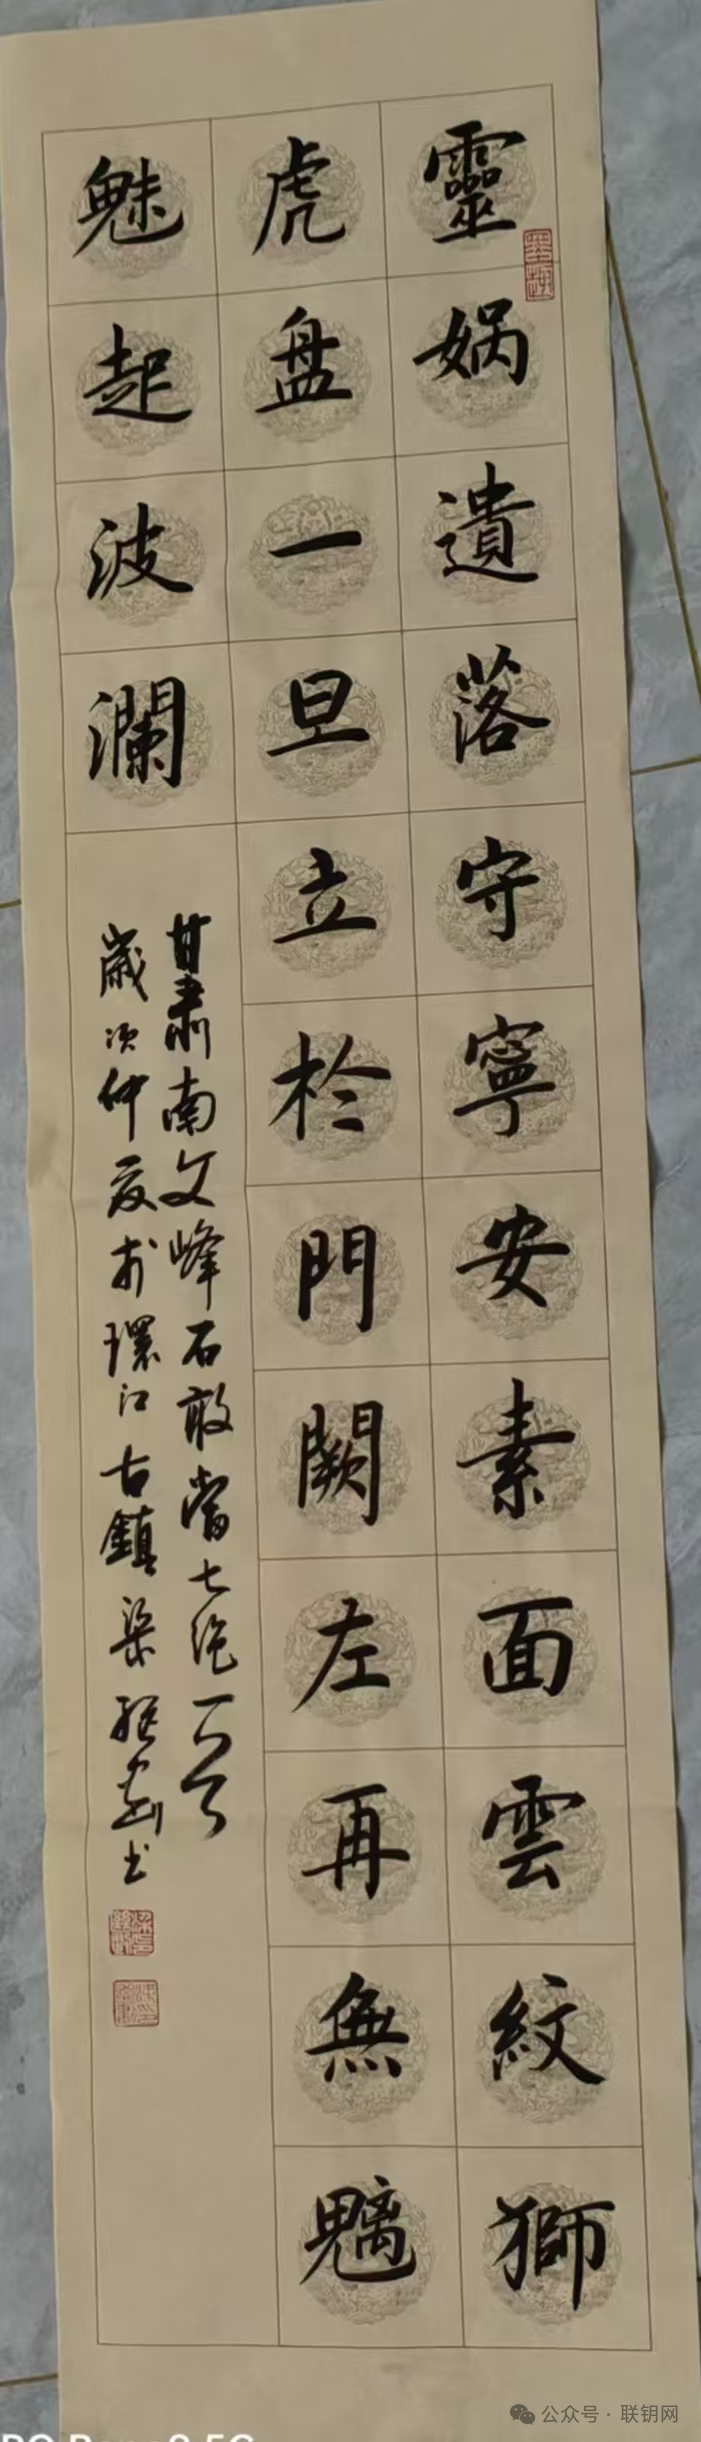 靈娲遺落守寧安素面雲紋獅
虎盘一旦立於門闕左再無魑
魅起波瀾
甘肅南文峰石敢當七绝一首
歲次仲夏於環江古鎮梁
书
公众号 · 联钥网